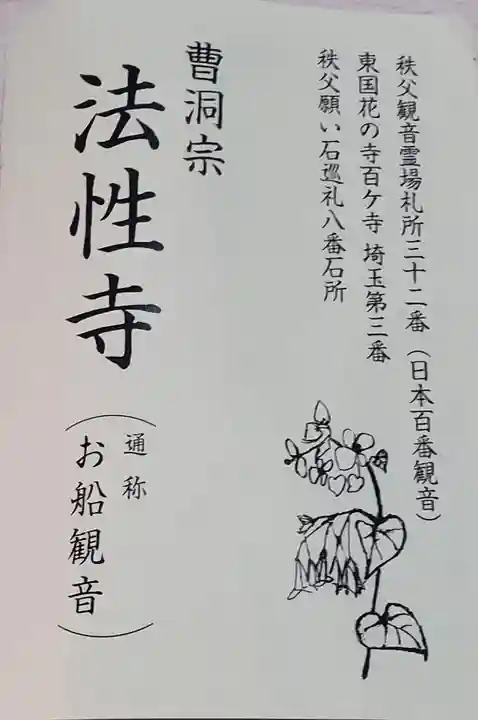 秩父観音霊場札所三十二番（日本百番観音）
東国花の寺百ケ寺 埼玉第三番
秩父願い石巡礼八番石所
曹洞宗
法性寺
（通称
お船観音）